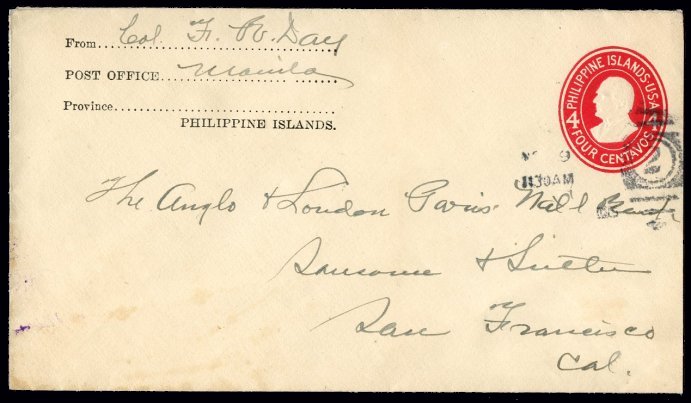 From Col. F. R. Day
POST OFFICE Manila
Province
PHILIPPINE ISLANDS.
PHILIPPINE ISLANDS·U.S.A.
4 4
FOUR CENTAVOS
9
1130AM
The Anglo & London Paris Nat'l Bank
Sansome & Sutter
San Francisco
Cal.